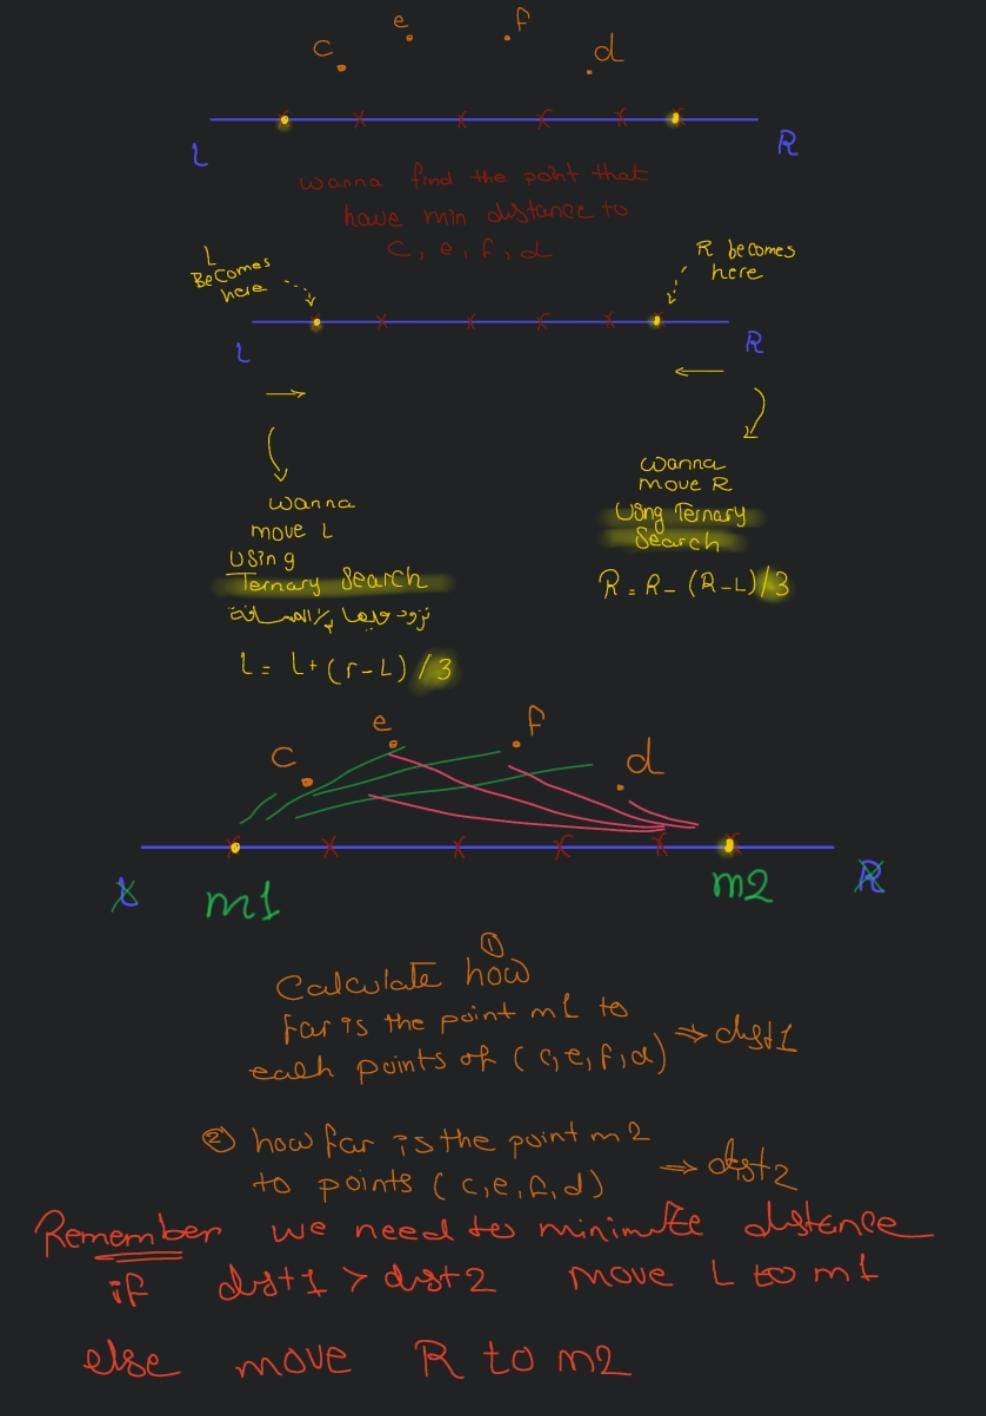 c e f d
L R
wanna find the point that
have min distance to
c, e, f, d
L
Becomes
here
R becomes
here
L R
wanna
move L
Using
Ternary Search
L = L + (r - L) /3
wanna
move R
Using Ternary
Search
R = R - (R-L)/3
c e f d
L m1 m2 R
①
Calculate how
far is the point m1 to
each points of (c,e,f,d) ⇒ dist1
② how far is the point m2
to points (c,e,f,d) ⇒ dist2
Remember we need to minimize distance
if dist1 > dist2 move L to m1
else move R to m2